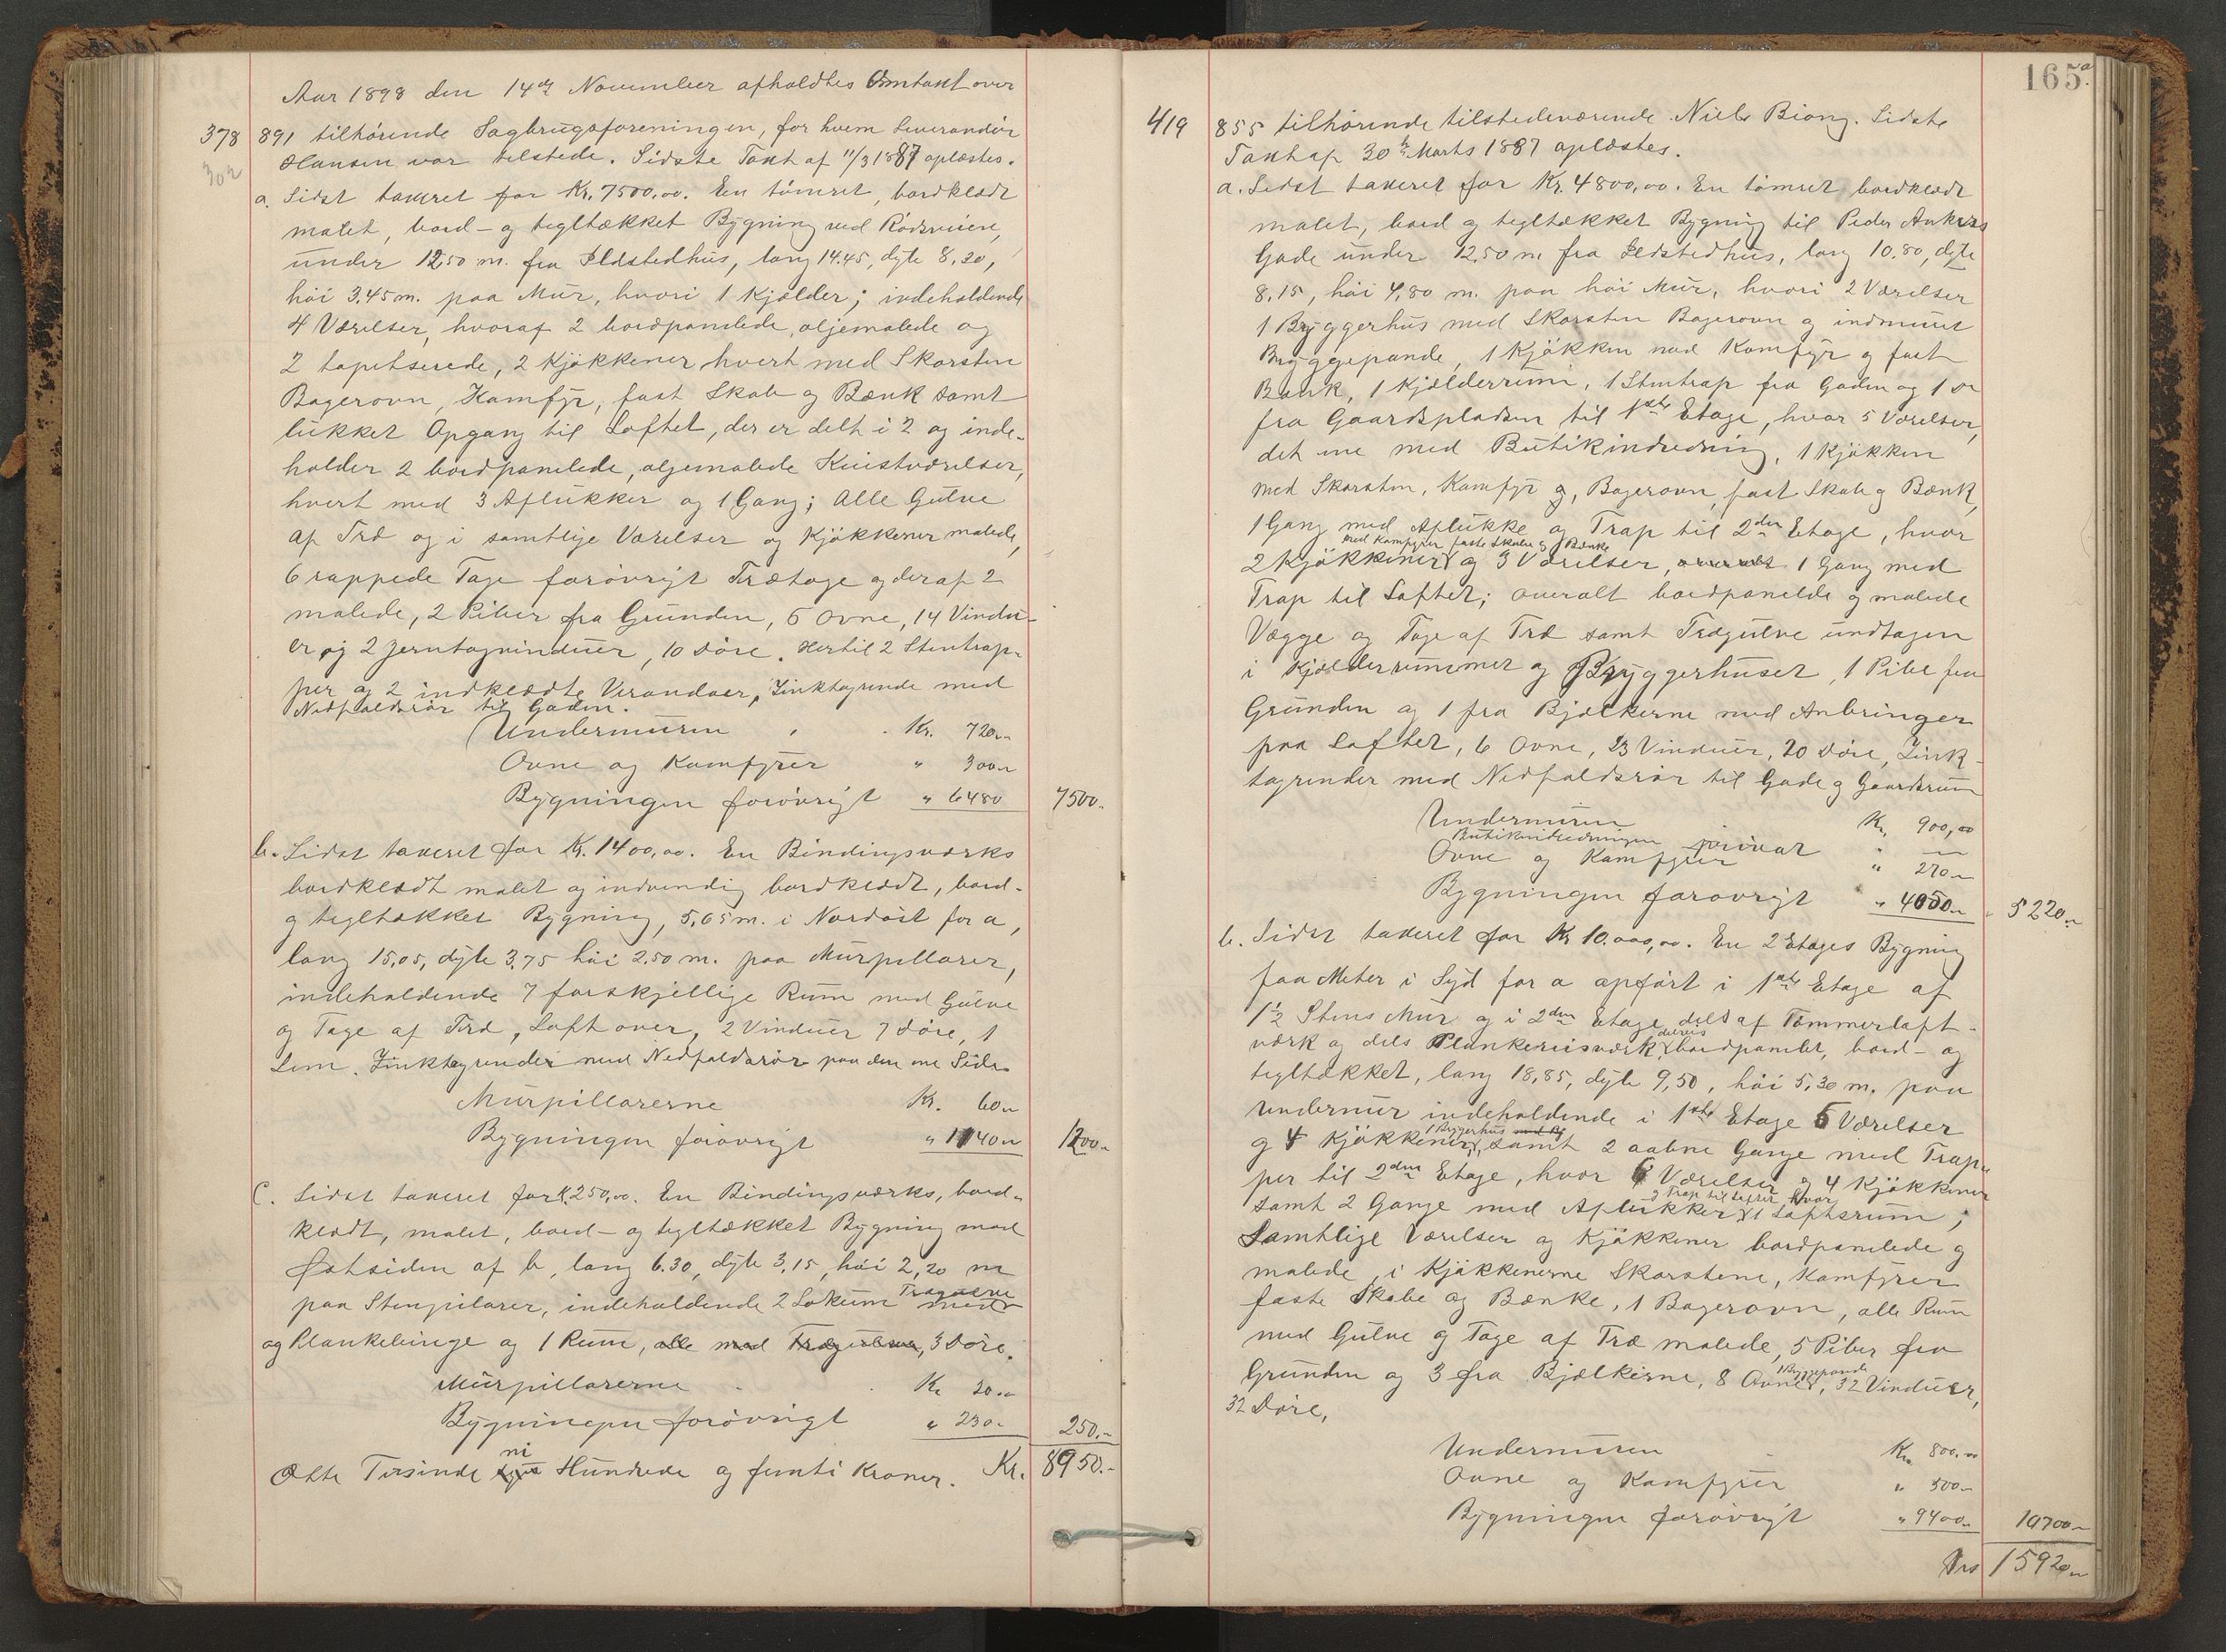 Aar 1898 den 14de November afholdtes Omtaxt over
378 891 tilhørende Sagbrugsforeningen, for hvem Leverandør
302 Hansen var tilstede. Sidste Taxt af 11/3 1887 oplæstes.
a. Sidst taxeret for Kr. 7500,00. En tømret, bordklædt
malet, bord- og tegltækket Bygning ved Rødsveien,
under 12.50 m. fra Ildstedhus, lang 14.45, dyb 8,20,
høi 3.45 m. paa Mur, hvori 1 Kjælder; indeholdende
4 Værelser, hvoraf 2 bordpanelede, oljemalede og
2 tapetserede, 2 Kjøkkener hvert med Skorsten
Bagerovn, Komfyr, fast Skab og Bænk samt
lukket Opgang til Loftet, der er delt i 2 og inde-
holder 2 bordpanelede, oljemalede Kvistværelser,
hvert med 3 Aflukker og 1 Gang; Alle Gulve
af Træ og i samtlige Værelser og Kjøkkener malede,
6 rappede Tage forøvrigt Trætage og deraf 2
malede, 2 Piber fra Grunden, 6 Ovne, 14 Vindu-
er og 2 Jerntagvinduer, 10 Døre. Hertil 2 Stentrap-
per og 2 indklædte Verandaer, Zinktagrende med
Nedfaldsrør til Gaden.
Undermuren Kr. 720.-
Ovne og Komfyrer " 300.-
Bygningen forøvrigt " 6480 7500.
b. Sidst taxeret for Kr. 1400,00. En Bindingsværks
bordklædt malet og indvendig bordklædt, bord-
og tegltækket Bygning, 5,65 m. i Nordøst for a,
lang 15,05, dyb 3,75 høi 2.50 m. paa Murpillarer,
indeholdende 7 forskjellige Rum med Gulve
og Tage af Træ, Loft over, 2 Vinduer 7 Døre, 1
Lem. Zinktagrender med Nedfaldsrør paa den ene Side.
Murpillarerne Kr. 60.-
Bygningen forøvrigt " 1140.- 1200.-
C. Sidst taxeret for K. 250,00. En Bindingsværks, bord-
klædt, malet, bord- og tegltækket Bygning mod
Østsiden af b, lang 6.30, dyb 3,15, høi 2,20 m
Trægulve
paa Stenpilarer, indeholdende 2 Lokum med
og Plankebinge og 1 Rum, alle med Trægulve, 3 Døre.
Murpillarerne Kr 20.-
Bygningen forøvrigt " 230.- 250.-
ni
Otte Tusinde syv Hundrede og femti Kroner. Kr. 8950.-
165a.
419 855 tilhørende tilstedeværende Niels Biong. Sidste
Taxt af 30te Marts 1887 oplæstes.
a. Sidst taxeret for Kr. 4800,00. En tømret bordklædt
malet, bord og tegltækket Bygning til Peder Ankers
Gade under 12.50 m fra Ildstedhus, lang 10.80, dyb
8,15, høi 4,80 m. paa høi Mur, hvori 2 Værelser
1 Bryggerhus med Skorsten Bagerovn og indmuret
Bryggepande, 1 Kjøkken med Komfyr og fast
Bænk, 1 Kjælderrum, 1 Stentrap fra Gaden og 1 Do
fra Gaardspladsen til 1ste Etage, hvor 5 Værelser,
det ene med Butikindredning, 1 Kjøkken
med Skorsten, Komfyr og, Bagerovn, fast Skab og Bænk,
1 Gang med Aflukke og Trap til 2den Etage, hvor
med Komfyrer faste Skabe og Bænke
2 Kjøkkener og 3 Værelser, overalt 1 Gang med
Trap til Loftet; overalt bordpanelede og malede
Vægge og Tage af Træ samt Trægulve undtagen
i Kjælderrummet og Bryggerhuset, 1 Pibe fra
Grunden og 1 fra Bjælkerne med Anbringer
paa Loftet, 6 Ovne, 23 Vinduer, 20 Døre, Zink-
tagrender med Nedfaldsrør til Gade og Gaardsrum
Undermuren Kr, 900,00
Butikindredningen privat " —
Ovne og Komfyrer " 270.-
Bygningen forøvrigt " 4050.- 5220.-
b. Sidst taxeret for Kr 10.000,00. En 2 Etages Bygning
faa Meter i Syd for a opført i 1ste Etage af
1½ Stens Mur og i 2den Etage dels af Tømmerlaft-
delvis
værk og dels Plankereisværk, bordpanelet, bord- og
tegltækket, lang 18,85, dyb 9,50, høi 5,30 m. paa
Undermur indeholdende i 1ste Etage 6 Værelser
1 Bryggerhus
og 4 Kjøkkener, samt 2 aabne Gange med Trap-
per til 2den Etage, hvor 6 Værelser og 4 Kjøkkener
og Trap til Loftet hvor
samt 2 Gange med Aflukker, 1 Loftsrum;
Samtlige Værelser og Kjøkkener bordpanelede og
malede, i Kjøkkenerne Skorstene, Komfyrer
faste Skabe og Bænke, 1 Bagerovn, alle Rum
med Gulve og Tage af Træ malede, 5 Piber fra
1 Bryggepande
Grunden og 3 fra Bjælkerne, 8 Ovne, 32 Vinduer,
32 Døre,
Undermuren Kr. 800.00
Ovne og Komfyrer " 500.-
Bygningen forøvrigt " 9400.- 10700.-
Trs 15920.-